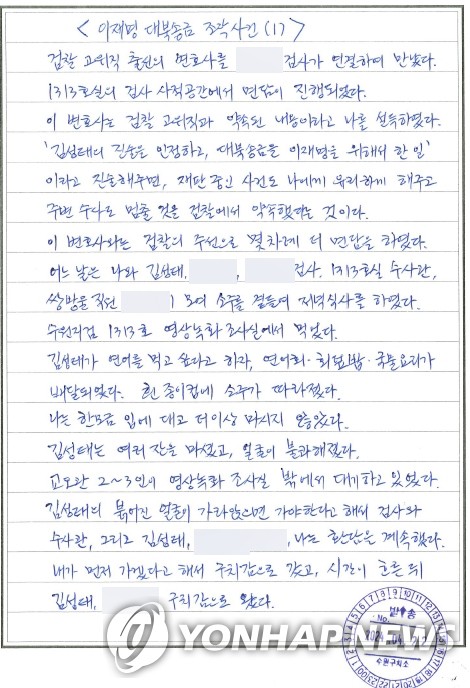 < 이재명 대북송금 조작사건 (1) >
검찰 고위직 출신의 변호사를 검사가 연결하여 만났다.
1313호실의 검사 사적공간에서 면담이 진행되었다.
이 변호사는 검찰 고위직과 약속된 내용이라고 나를 설득하였다.
'김성태의 진술을 인정하고, 대북송금을 이재명을 위해서 한 일'
이라고 진술해주면, 재판 중인 사건도 나에게 유리하게 해주고
주변 수사도 멈출 것을 검찰에서 약속했다는 것이다.
이 변호사와는 검찰의 주선으로 몇차례 더 면담을 하였다.
어느 날은 나와 김성태, , 검사. 1313호실 수사관,
쌍방울 직원 ) 모여 소주를 곁들여 저녁식사를 하였다.
수원지검 1313호 영상녹화 조사실에서 먹었다.
김성태가 연어를 먹고 싶다고 하자, 연어회·회덮밥·국물요리가
배달되었다. 흰 종이컵에 소주가 따라졌다.
나는 한모금 입에 대고 더이상 마시지 않았다.
김성태는 여러 잔을 마셨고, 얼굴이 불과해졌다.
교도관 2~3인이 영상녹화 조사실 밖에서 대기하고 있었다.
김성태의 붉어진 얼굴이 가라앉으면 가야한다고 해서 검사와
수사관, 그리고 김성태, , 나는 환담은 계속했다.
내가 먼저 가겠다고 해서 구치감으로 갔고, 시간이 흐른 뒤
김성태, 구치감으로 왔다.
YONHAP NEWS
발송
No.
수원구치소